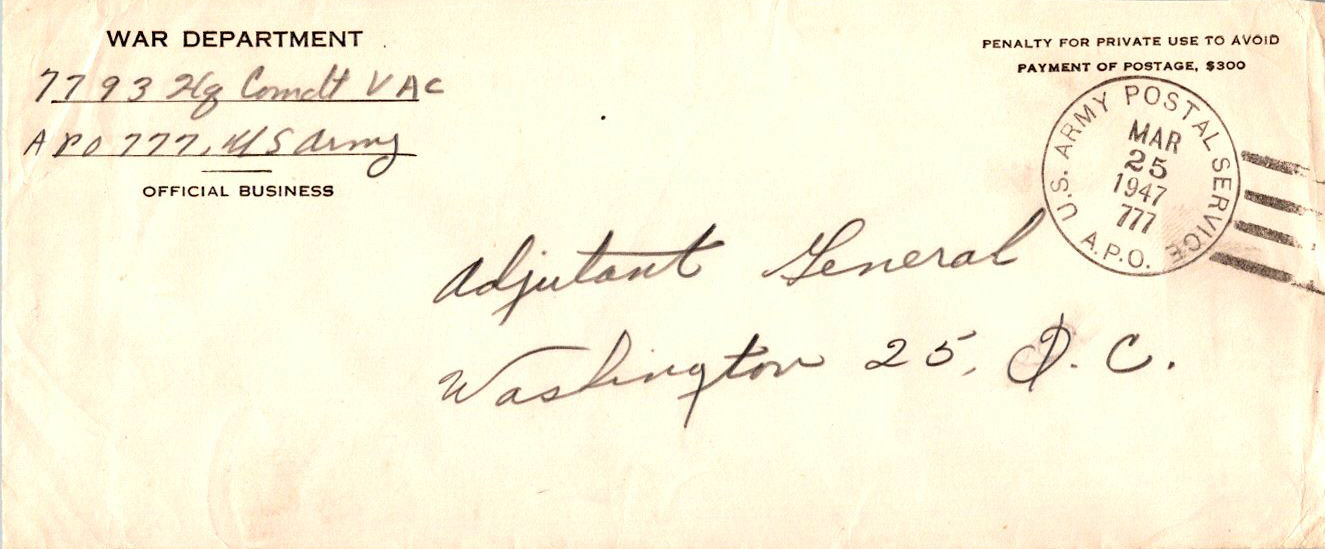 WAR DEPARTMENT
7793 Hq Comdt VAC
APO 777, US Army
OFFICIAL BUSINESS
PENALTY FOR PRIVATE USE TO AVOID
PAYMENT OF POSTAGE, $300
U.S. ARMY POSTAL SERVICE
MAR
25
1947
777
A.P.O.
Adjutant General
Washington 25, D.C.